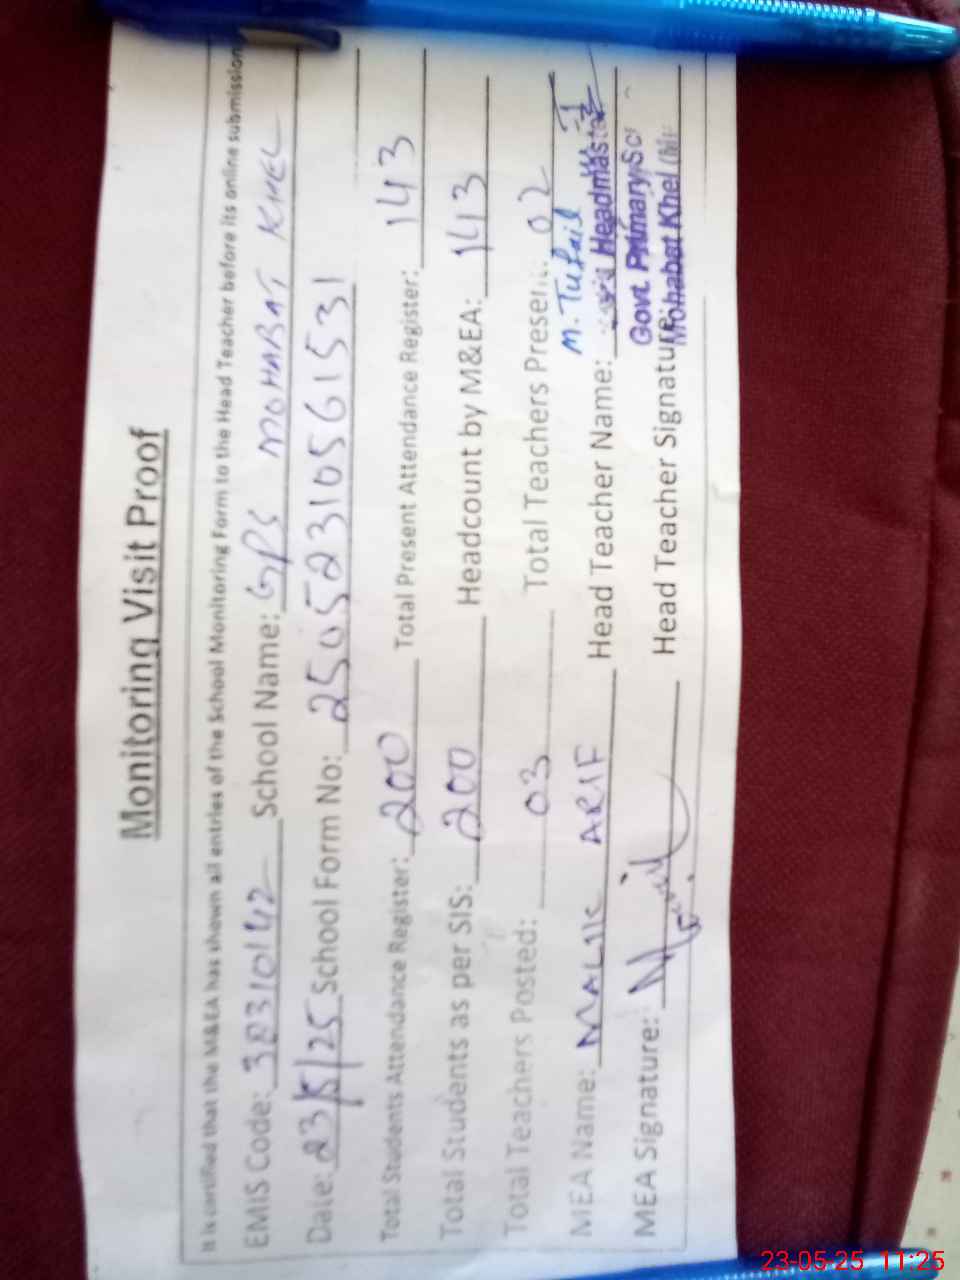 Monitoring Visit Proof
It is certified that the M&EA has shown all entries of the School Monitoring Form to the Head Teacher before its online submission
EMIS Code: 38310142 School Name: GPS MOHABAT KHEL
Date: 23/5/25 School Form No: 25052310561531
Total Students Attendance Register: 200 Total Present Attendance Register: 143
Total Students as per SIS: 200 Headcount by M&EA: 143
Total Teachers Posted: 03 Total Teachers Present: 02
MEA Name: MALIK ARIF Head Teacher Name: M. Tufail
Headmaster
Govt. Primary Sc
Mohabat Khel
MEA Signature: Head Teacher Signature:
23-05-25 11:25